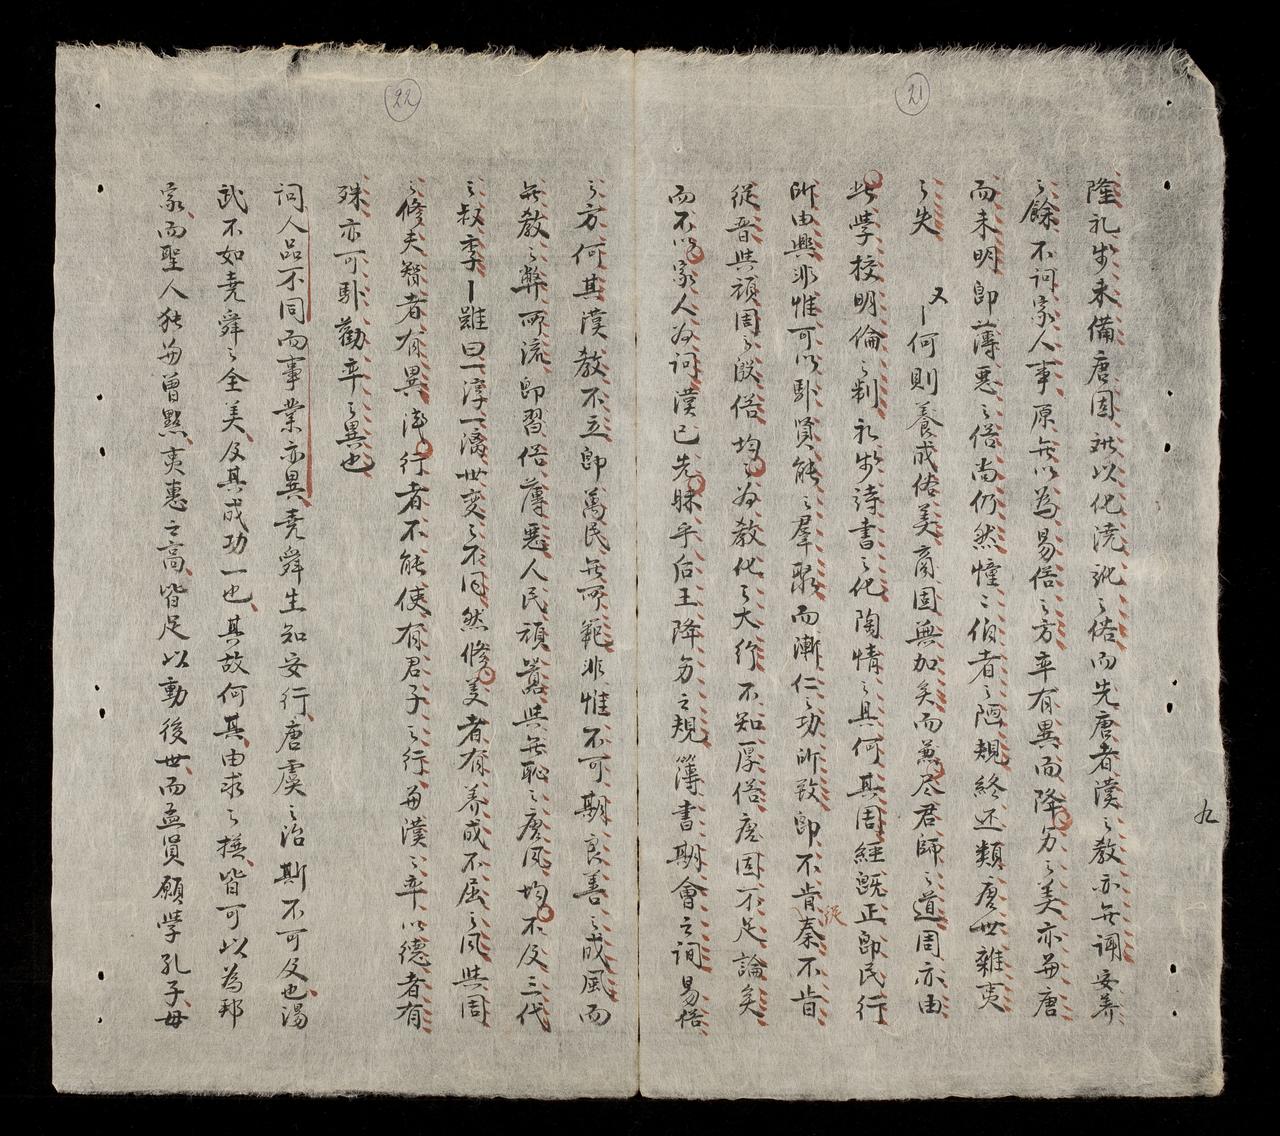 21
隆礼步未備唐固難以化澆訛之俗而先唐者漢之教亦無調安养
之餘不问家人事原無以為易俗之方卒有異而降另之美亦毎唐
而未明卽薄惡之俗尚仍然憧憧伯者之陋規終还類唐世雜夷
之失 又一何則養成俗美商固無加矣而兼尽君師之道周亦由
此學校明倫之制礼步詩書之化陶情之具何其周經既正卽民行
所由興非惟可以卧賢能之羣聚而漸仁之功所致卽不肯秦不肯
從
從晋與頑周之淑俗均之為教化之大行不知厚俗唐固不足論矣
而不以家人为问漢已先昧乎后王降另之規簿書期會之间易俗
九
22
之方何其漢教不立卽萬民無可範非惟不可期良善之成風而
無教之弊所流卽習俗薄惡人民頑嚚與無恥之唐風均不及三代
之叔季一雖曰一淳一漓世变之不同然修美者有养成不屈之风與周
之修夫智者有異德行者不能使有君子之行毎漢之卒以德者有
殊亦可卧勸卒之異也
词人品不同而事業亦異堯舜生知安行唐虞之治斯不可及也湯
武不如堯舜之全美及其成功一也其故何其由求之撫皆可以為邦
家而聖人独毎曾點夷惠之高皆足以動後世而孟貟願學孔子毋